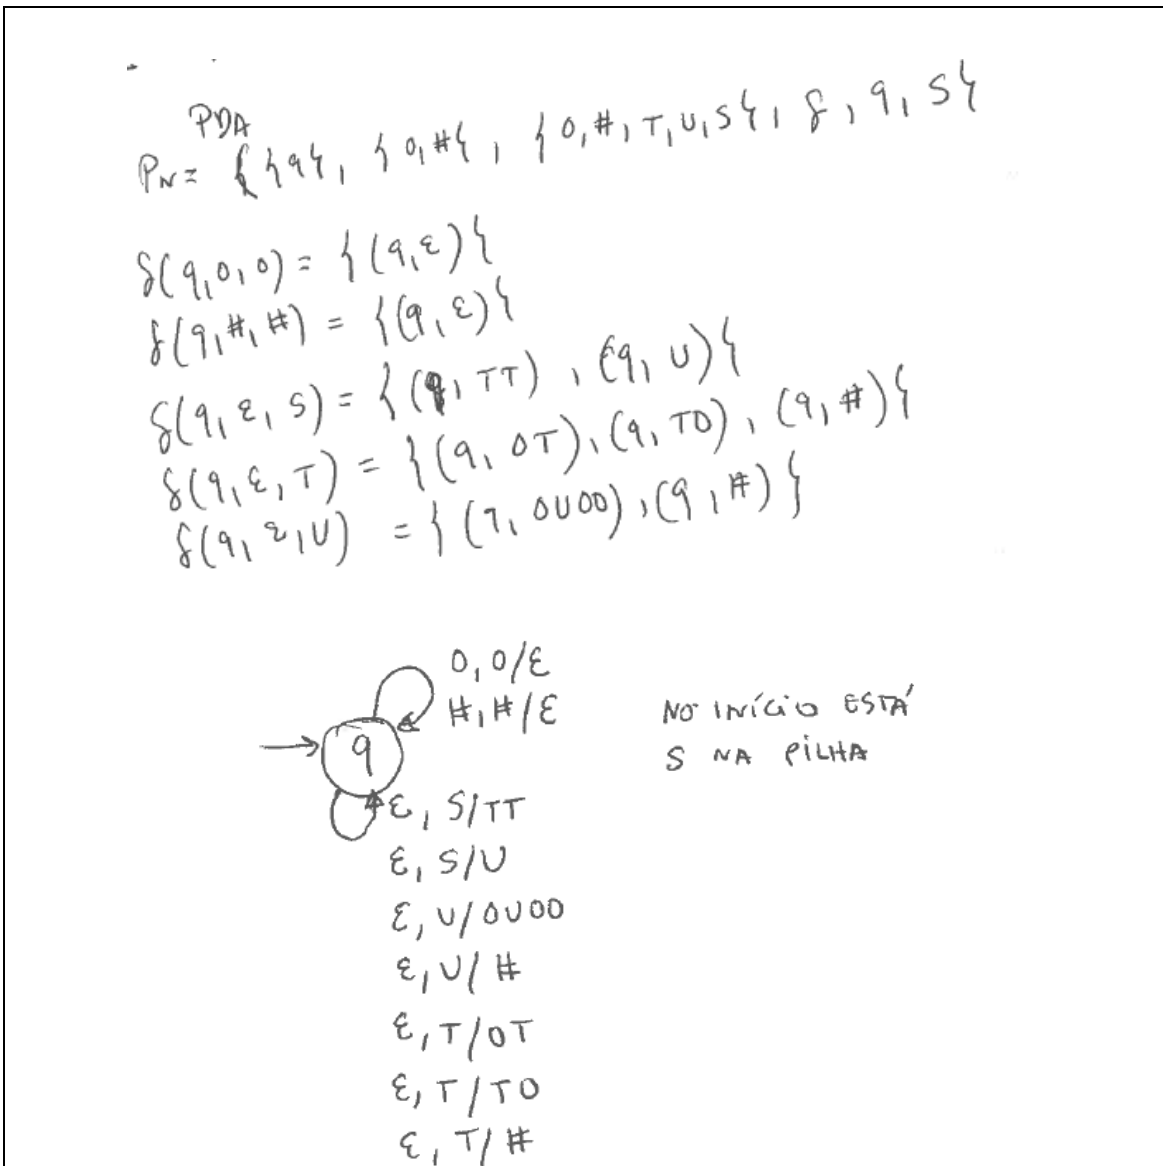 PDA
PN = { {q}, {0,#}, {0,#,T,U,S}, δ, q, S}
δ(q,0,0) = {(q,ε)}
δ(q,#,#) = {(q,ε)}
δ(q,ε,S) = {(q,TT), (q,U)}
δ(q,ε,T) = {(q,0T), (q,T0), (q,#)}
δ(q,ε,U) = {(q,0U00), (q,#)}
0,0/ε
#,#/ε
NO INÍCIO ESTÁ
S NA PILHA
q
ε, S/TT
ε, S/U
ε, U/0U00
ε, U/#
ε, T/0T
ε, T/T0
ε, T/#